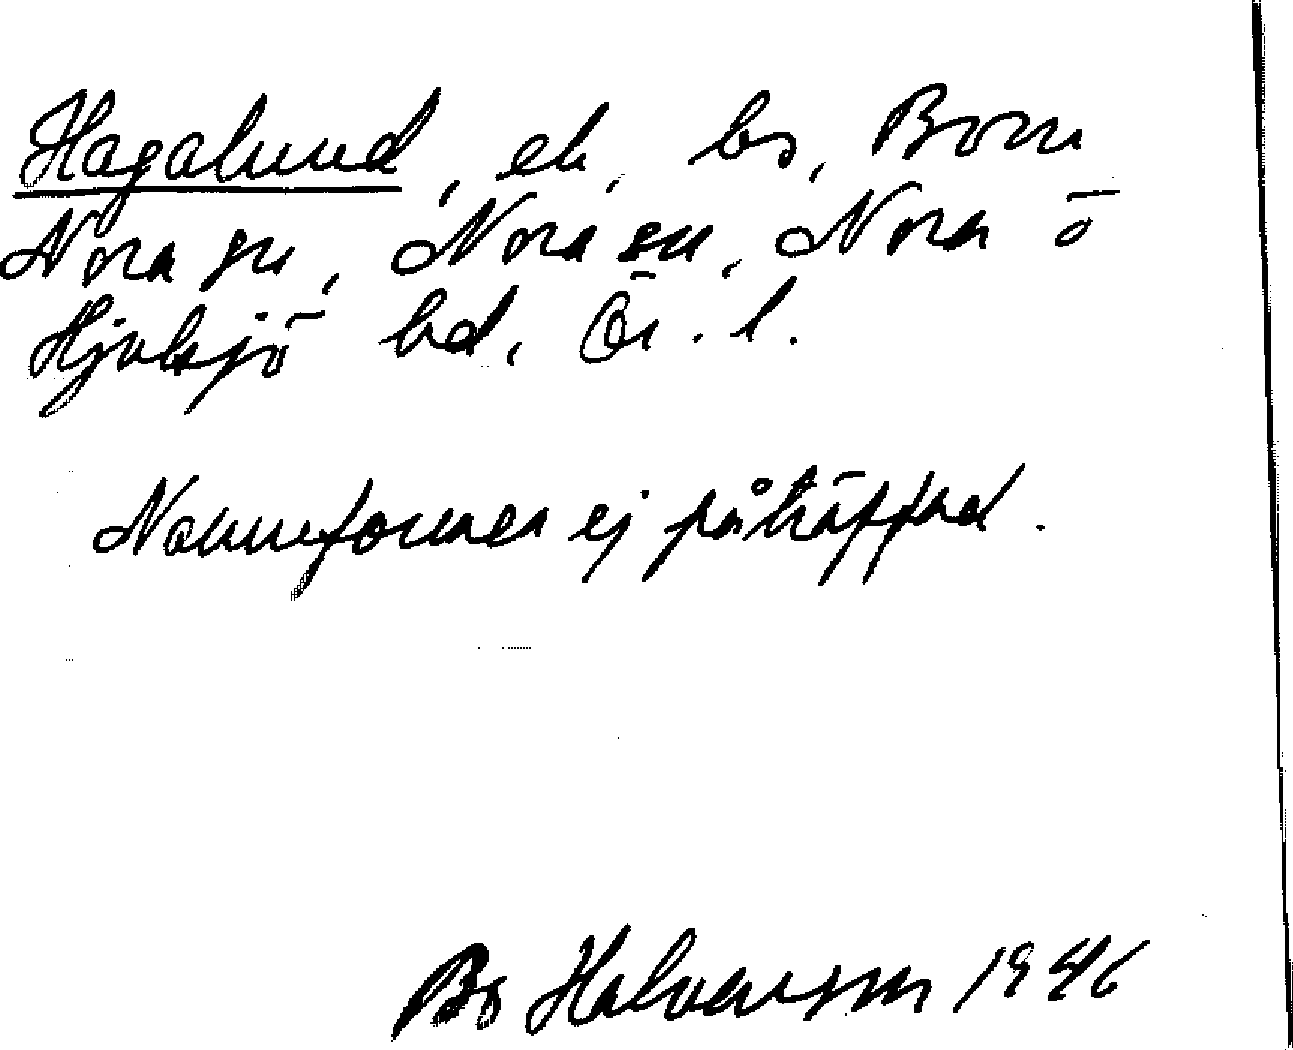 Hagalund, ek, bs, Born
Nora gu, Nora sn, Nora o
Hjulsjö bd, Ör. l.
Namnformen ej påträffad.
Bo Halvarsson 1946